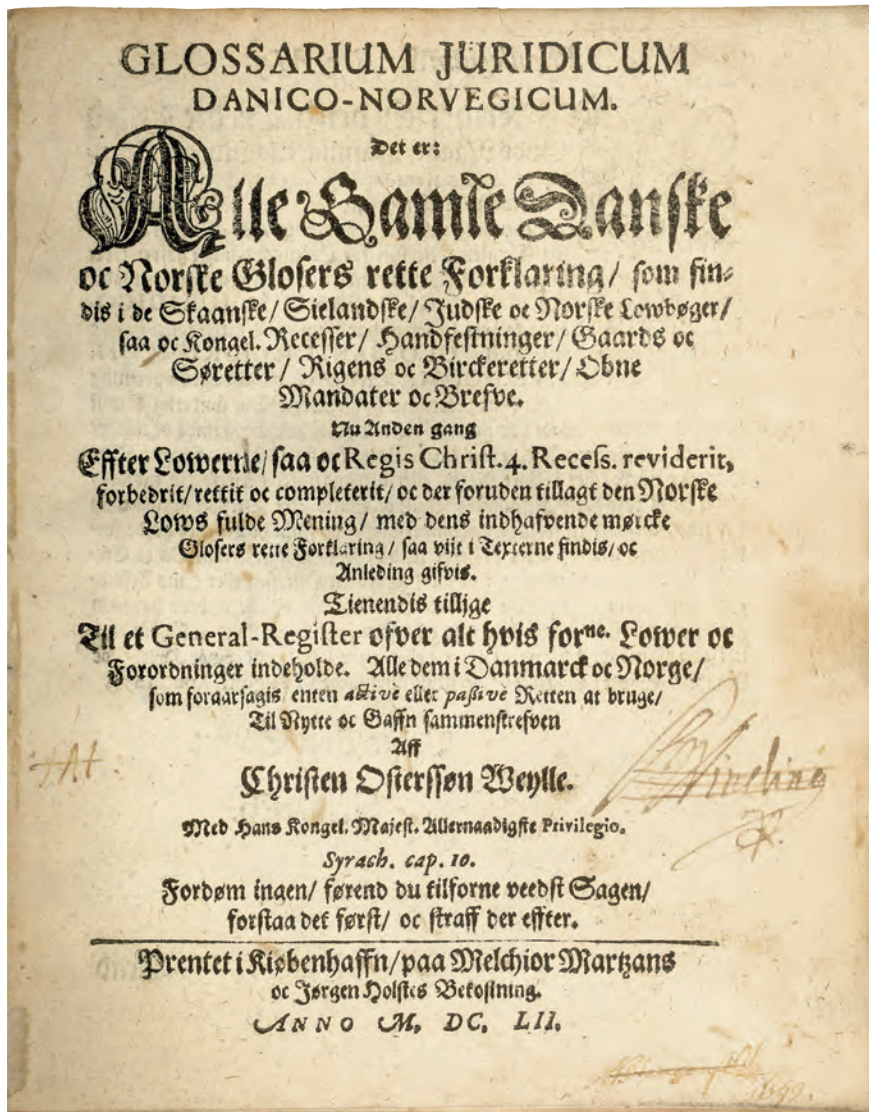 GLOSSARIUM JURIDICUM
DANICO-NORVEGICUM.
Det er:
Alle Gamle Danske
oc Norske Glosers rette Forklaring/ som fin-
dis i de Skaanske/ Sielandske/ Judske oc Norske Lowbøger/
saa oc Kongel. Recesser/ Handfestninger/ Gaards oc
Søretter/ Rigens oc Birckeretter/ Obne
Mandater oc Brefve.
Nu Anden gang
Effter Lowerne/ saa oc Regis Christ. 4. Recess. reviderit,
forbedrit/ rettit oc completerit/ oc der foruden tillagt den Norske
Lows fulde Mening/ med dens indhafvende mørcke
Glosers rette Forklaring/ saa vijt i Texterne findis/ oc
Anleding gifvis.
Tienendis tillige
Til et General-Register ofver alt hvis forne. Lower oc
Forordninger indeholde. Alle dem i Danmarck oc Norge/
som foraarsagis enten active eller passive Retten at bruge/
Til Nytte oc Gaffn sammenskrefven
Aff
Christen Osterssøn Weylle.
Med Hans Kongel. Majest. Allernaadigste Privilegio.
Syrach. cap. 10.
Fordøm ingen/ førend du tilforne veedst Sagen/
forstaa det først/ oc straff der effter.
Prentet i Kiøbenhaffn/ paa Melchior Martzans
oc Jørgen Holstes Bekostning.
ANNO M. DC. LII.